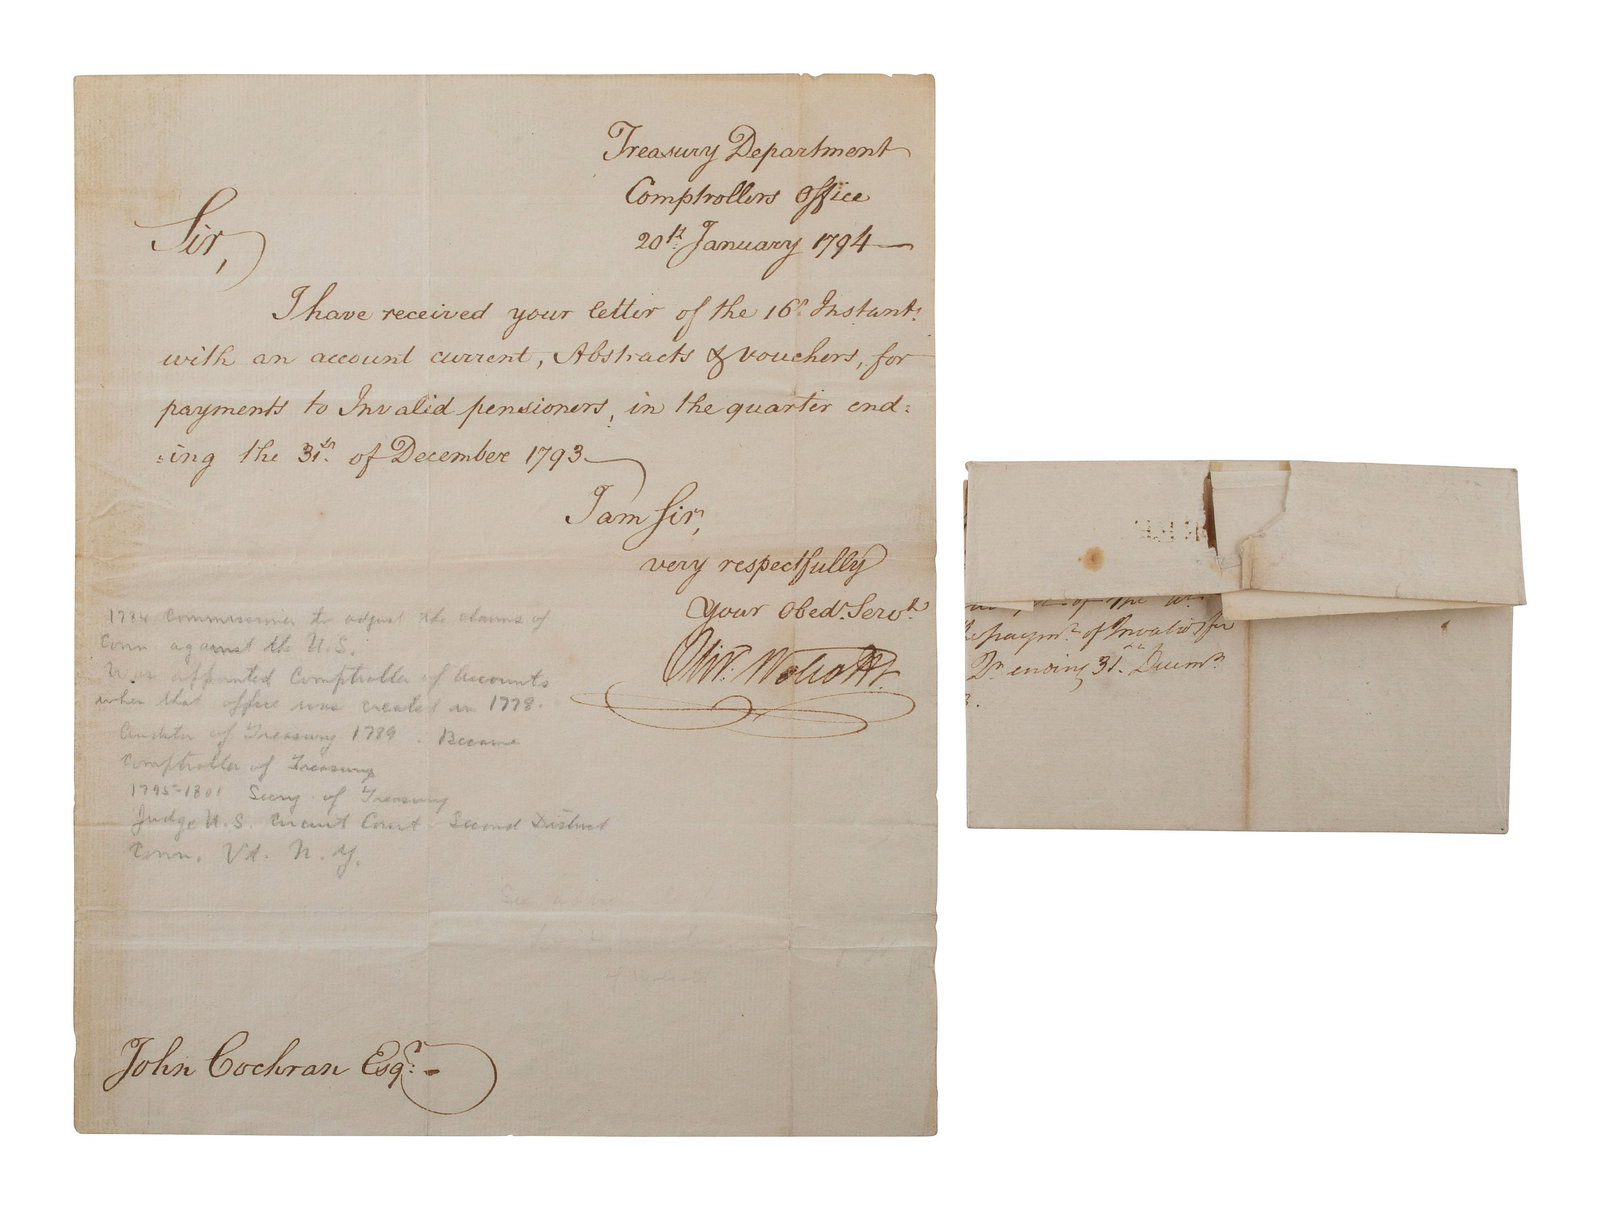 Treasury Department
Comptrollers Office
20th January 1794
Sir,
I have received your letter of the 16th Instant.
with an account current, Abstracts & vouchers, for
payments to Invalid pensioners, in the quarter end=
=ing the 31st of December 1793
I am Sir,
very respectfully
Your Obedt. Servt.
Olivr. Wolcott Jr.
1784 Commissioner to adjust the claims of
Conn against the U.S.
Was appointed Comptroller of Accounts
when that office was created in 1778.
Auditor of Treasury 1789. Became
Comptroller of Treasury
1795-1801 Secry. of Treasury
Judge U.S. Circuit Court Second District
Conn. Vt. N.Y.
of Wolcott
John Cochran Esqr.
of the
paymt. of Invalids for
Qr. ending 31st. Decemr.
3.